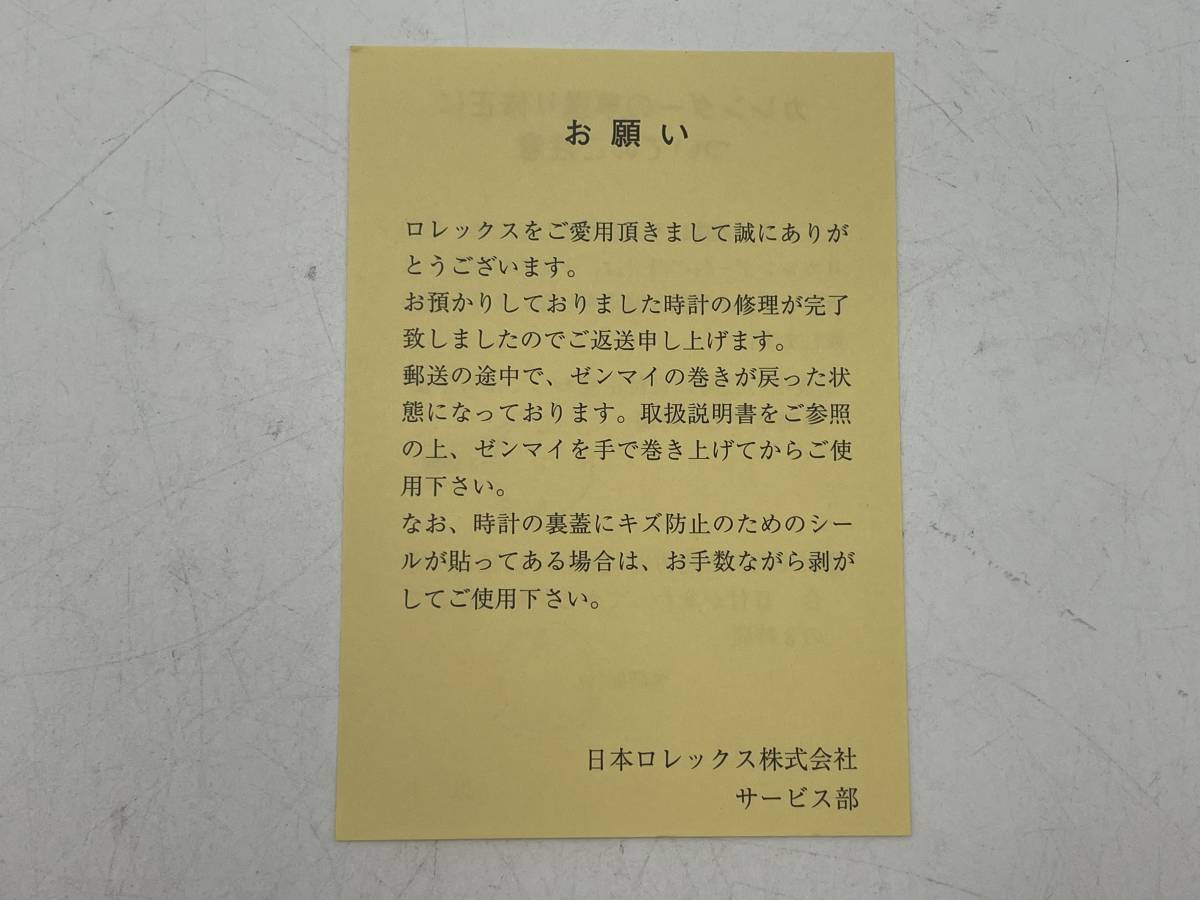 お願い
ロレックスをご愛用頂きまして誠にありが
とうございます。
お預かりしておりました時計の修理が完了
致しましたのでご返送申し上げます。
郵送の途中で、ゼンマイの巻きが戻った状
態になっております。取扱説明書をご参照
の上、ゼンマイを手で巻き上げてからご使
用下さい。
なお、時計の裏蓋にキズ防止のためのシー
ルが貼ってある場合は、お手数ながら剥が
してご使用下さい。
日本ロレックス株式会社
サービス部